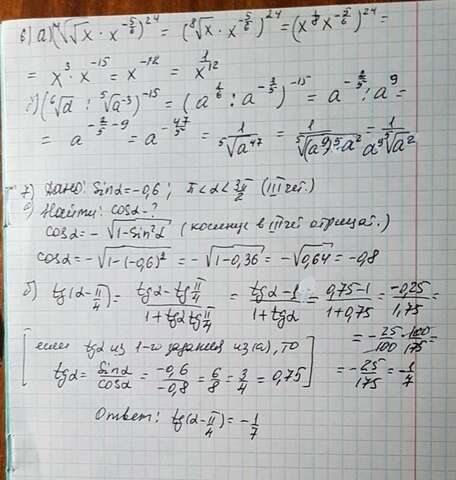 6) a) (⁴√√x · x^(-5/6))^24 = (⁸√x · x^(-5/6))^24 = (x^(1/8) x^(-5/6))^24 =
= x^3 · x^(-15) = x^(-12) = 1/x^12
(⁶√a : ⁵√a^(-3))^(-15) = (a^(1/6) : a^(-3/5))^(-15) = a^(-2/5) : a^9 =
= a^(-2/5-9) = a^(-47/5) = 1/⁵√a^47 = 1/⁵√((a^9)^5 a^2) = 1/(a^9 ⁵√a^2)
7) Дано: Sinα = -0,6; π < α < 3π/2 (III чет.)
Найти: cosα - ?
cosα = -√(1-Sin²α) (косинус в III чет отрицат.)
cosα = -√(1-(-0,6)²) = -√(1-0,36) = -√0,64 = -0,8
б) tg(α-π/4) = (tgα - tg π/4)/(1+tgα tg π/4) = (tgα-1)/(1+tgα) = (0,75-1)/(1+0,75) = -0,25/1,75 =
[если tgα из 1-го задания из (а), то
= -25/100 · 100/175 =
tgα = sinα/cosα = -0,6/-0,8 = 6/8 = 3/4 = 0,75]
= -25/175 = -1/7
Ответ: tg(α-π/4) = -1/7